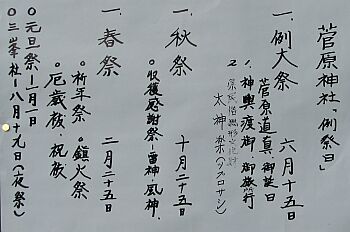 菅原神社「例祭日」
一、例大祭 六月十五日
菅原道真・御誕日
1、神輿渡御・御旅行
2、
太神楽(ダクロサシ)
一、秋祭 十月二十五日
○収穫感謝祭・雷神・風神、
一、春祭 二月二十五日
○祈年祭・鎮火祭
○厄歳祓・祝祓
○元旦祭ー一月一日
○三峯社ー八月十九日(夜祭)